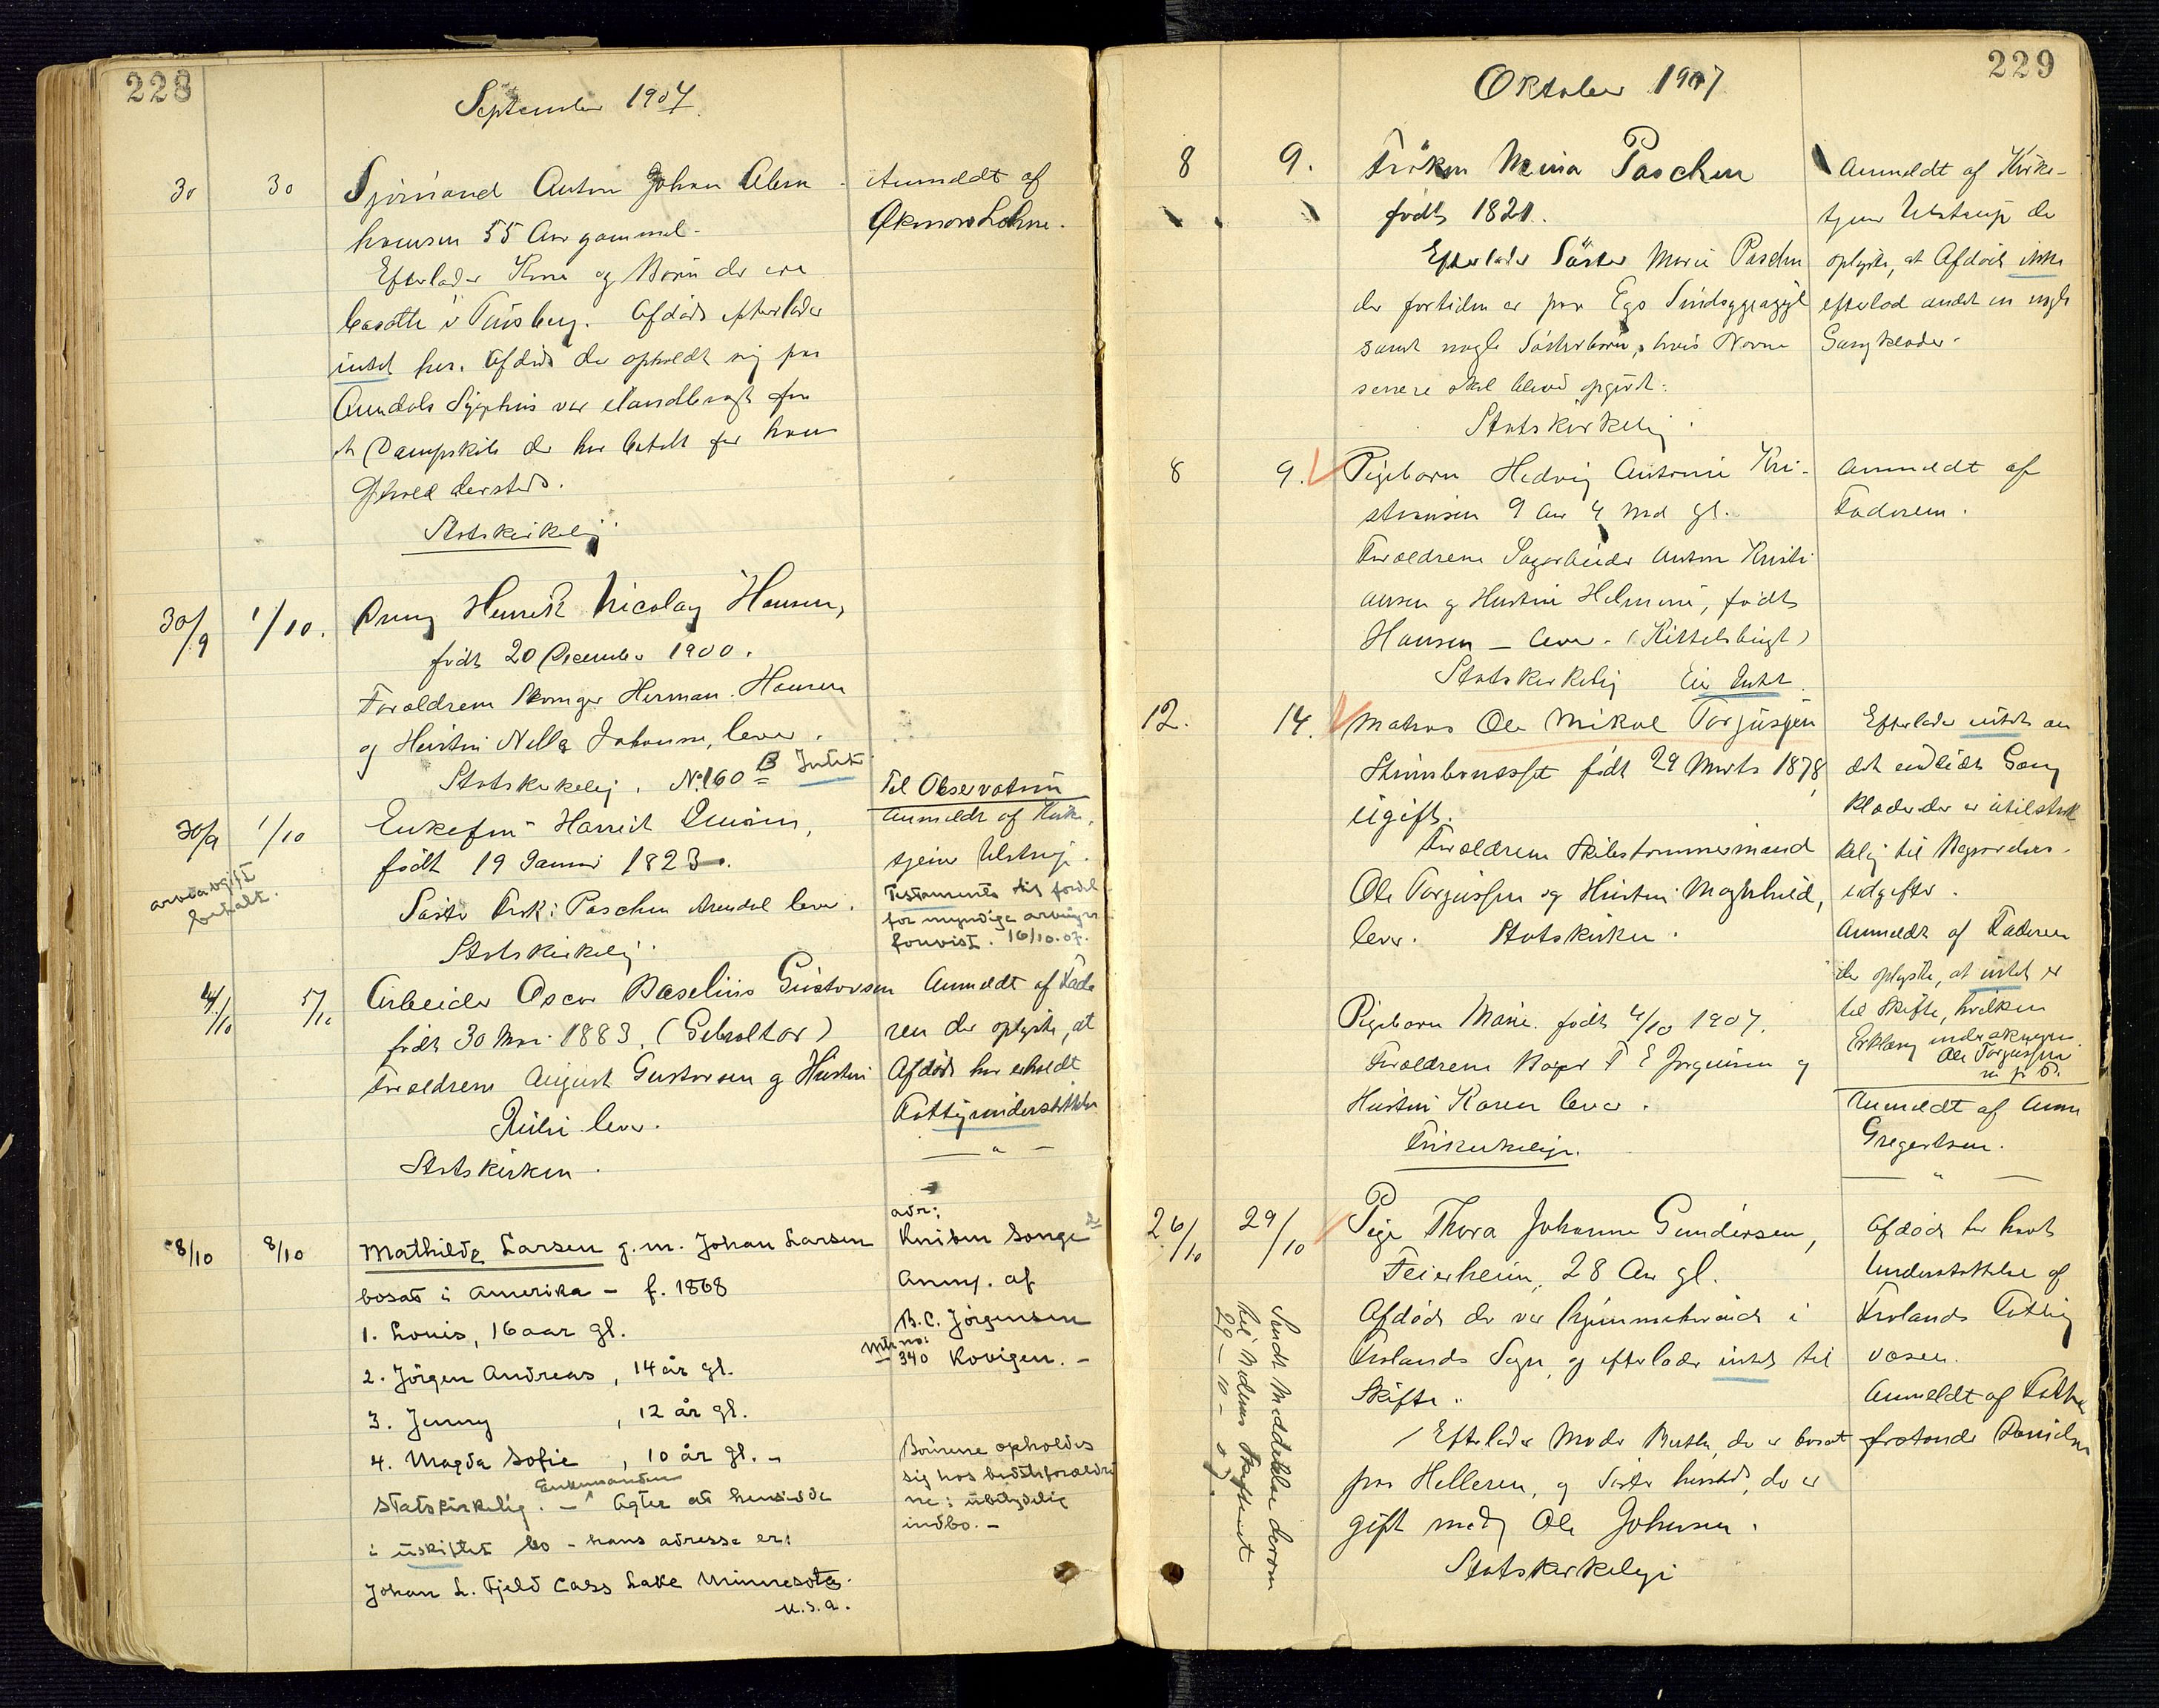 228
September 1907.
30
30
Sjømand Anton Johan Abra-
hamsen 55 Aar gammel.
Efterlader Kone og Børn der ere
bosatte i Tønsberg. Afdøde efterlader
intet her. Afdøde der opholdt sig paa
Arendals Sygehus var ilandbragt fra
et Dampskib der har betalt for hans
Ophold dersteds.
Statskirkelig
Anmeldt af
30/9
1/10.
Dreng Henrik Nicolay Hansen,
født 20 December 1900.
Forældrene Herman Hansen
og Hustru Johanne, lever.
Statskirkelig. No 160 B Intet
Til Observation
30/9
1/10
arveavgift
betalt.
Enkefru Harriet
født 19 Januar 1823.
Søster Frøk: Paschen Arendal lever.
Statskirkelig.
Anmeldt af Kirke-
tjener Ulstrup.
Testamente til fordel
for myndige arvinger
forevist. 16/10.07.
4/10
5/10
Arbeider Oscar Baselius Gustavsen
født 30 Mai 1883. (Gibraltar)
Forældrene August Gustavsen og Hustru
lever.
Statskirken.
Anmeldt af Fade
ren der oplyste, at
Afdøde har erholdt
Fattigunderstøttelse
— " —
8/10
8/10
Mathilde Larsen g.m. Johan Larsen
bosat i Amerika - f. 1868
1. Louis, 16 aar gl.
2. Jörgen Andreas, 14 år gl.
3. Jenny , 12 år gl.
4. Magda Sofie , 10 år gl. -
Enkemanden
Statskirkelig. - Agter at hensidde
i uskiftet bo - hans adresse er:
Johan L. Fjeld Cass Lake Minnesota.
U.S.A.
adr:
Kniben Songe
Anm. af
B.C. Jörgensen
Mtr no:
340 Kovigen. -
Börnene opholdes
sig hos bedsteforældre
ne: übetydelig
indbo. -
229
Oktober 1907
8
9.
Frøken Mina Paschen
født 1821.
Efterlader Søster Marie Paschen
der fortiden er paa Egs Sindsygeasyl
samt nogle Søsterbørn, hvis Navne
senere skal blive opgivet.
Statskirkelig.
Anmeldt af Kirke-
tjener Ulstrup der
oplyste, at Afdøde ikke
efterlod andet en nogle
Gangklæder.
8
9.
Pigebarn Hedvig Antonie Kri-
stiansen 9 Aar 4 Md gl.
Forældrene Sagarbeider Anton Kristi
ansen og Hustru Helmine, født
Hansen - lever. (Kittelsbugt)
Statskirkelig Eier Intet.
Anmeldt af
Faderen.
12.
14.
Matros Ole Mikal Torjussen
Strømbunæsset født 29 Marts 1878,
ugift.
Forældrene Skibstømmermand
Ole Torjussen og Hustru Maghhild,
lever. Statskirken.
Efterlader intet an
det end lidt Gang
klæder der er utilstræk
kelig til Begravelses-
udgifter.
Anmeldt af Faderen
der oplyste, at intet er
til Skifte, hvilken
Erklæring underskrives.
Ole Torjussen
m p P.
Pigebarn Marie født 4/10 1907.
Forældrene Bager T E Jørgensen og
Hustru Karen lever.
Frikirkelige.
Anmeldt af Anna
Gregertsen.
— " —
26/10
29/10
Pige Thora Johanne Gundersen,
Feierheien, 28 Aar gl.
Afdøde der var hjemmehørende i
Frolands Sogn, og efterlader intet til
Skifte.
Efterlader Moder Berthe, der er bosat
paa Helleren, og Søster der er
gift med Ole Johnsen.
Statskirkelige
Afdøde har havt
Understøttelse af
Frolands Fattig
væsen.
Anmeldt af Fattig
forstander Danielsen
Sendt Meddelelse derom
til Nedenes Skifteret
29-10-07.